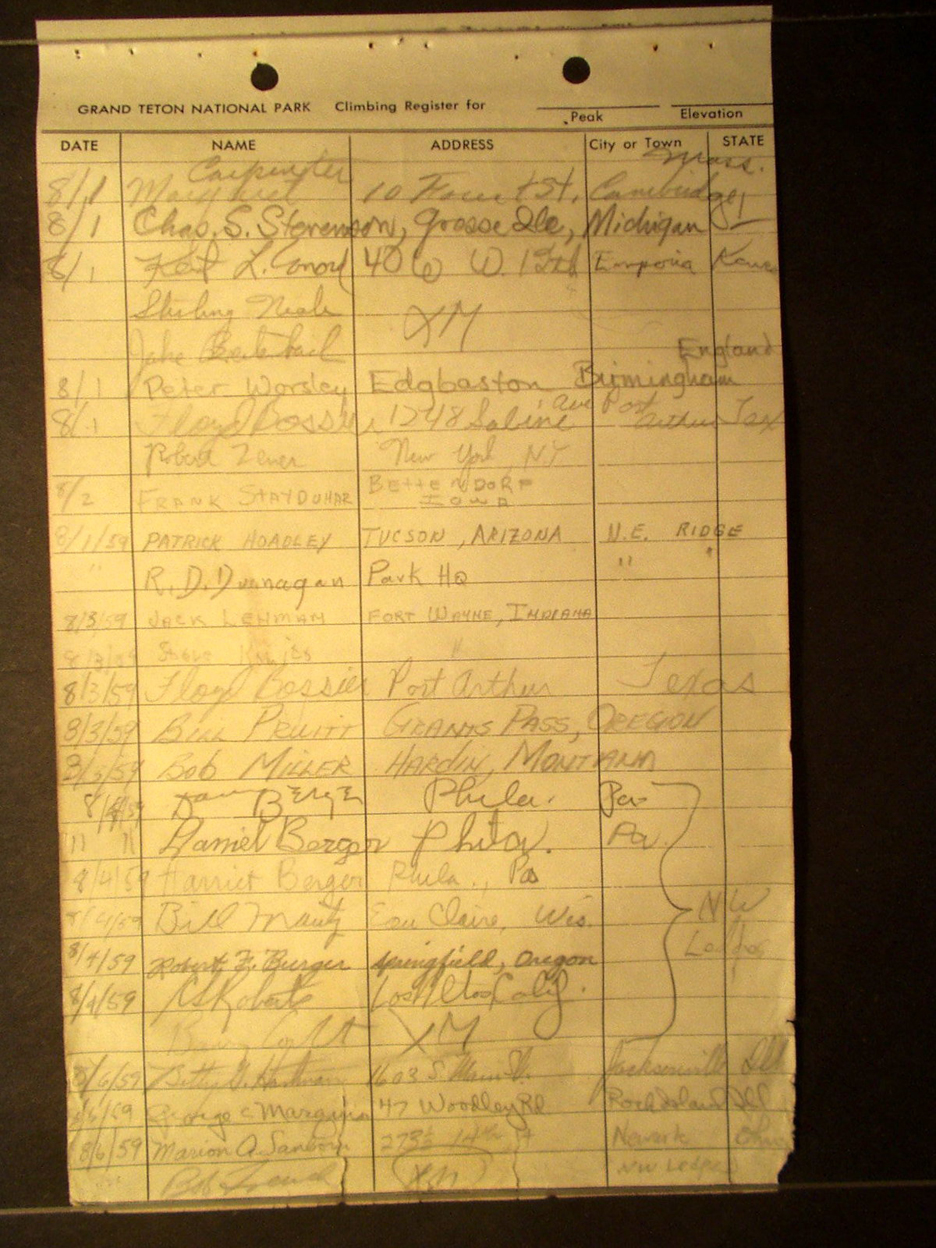 GRAND TETON NATIONAL PARK Climbing Register for
Peak Elevation
DATE NAME ADDRESS City or Town STATE
Carpenter Mass.
8/1 Margaret 10 Forest St. Cambridge
8/1 Chas. S. Stevenson, Grosse Ile, Michigan
8/1 L. 406 W. 12th Emporia Kans
Sterling Neale XM
Jake Breitenbach
England
8/1 Peter Worsley Edgbaston Birmingham
8/1 Floyd Bossier 1248 Sabine Ave Port Arthur Tex
Robert New York NY
8/2 FRANK STAYDUHAR BETTENDORF IOWA
8/1/59 PATRICK HOADLEY TUCSON, ARIZONA N.E. RIDGE
" R. D. Dunnagan Park HQ " "
8/3/59 JACK LEHMAN FORT WAYNE, INDIANA
8/3/59 Steve "
8/3/59 Floyd Bossier Port Arthur Texas
8/3/59 BILL PRUITT GRANTS PASS, OREGON
8/3/59 BOB MILLER HARDIN, MONTANA
8/4/59 BERGER Phila. Pa
" " Daniel Berger Phila. Pa.
8/4/59 Harriet Berger Phila., Pa
8/4/59 Bill Eau Claire, Wis. NW
8/4/59 Robert F. Burger Springfield, Oregon Ledges
8/4/59 Roberts Los Altos Calif.
Barry Corbet XM
8/6/59 Betty Hartman 1603 S. Main St. Jacksonville Ill
8/6/59 George C 47 Woodley Rd Rock Island Ill
8/6/59 Marion A. Sanborn 273½ 14th St Newark Ohio
Bob French XM NW Ledges